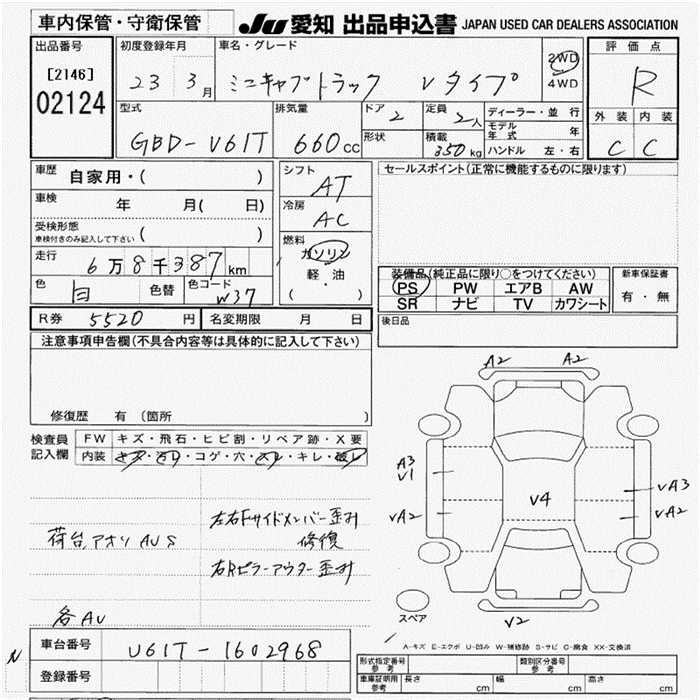 車内保管・守衛保管 JU 愛知 出品申込書 JAPAN USED CAR DEALERS ASSOCIATION
出品番号 [2146] 02124
初度登録年月 23 3月
車名・グレード ミニキャブトラック Vタイプ
2WD 4WD
評価点 R
外装 内装
C C
型式 GBD-V61T
排気量 660cc
ドア 2
形状
定員 2人
積載 350kg
ディーラー・並行
モデル年式 年
ハンドル 左・右
車歴 自家用・( )
車検 年 月( 日)
受検形態 ( )
車検付きのみ記入して下さい
走行 6万8千387km
色 白 色替 色コード W37
シフト AT
冷房 AC
燃料 ガソリン
軽・油
( ・ )
セールスポイント(正常に機能するものに限ります)
装備品(純正品に限り○をつけてください)
PS PW エアB AW
SR ナビ TV カワシート
新車保証書
有・無
後日品
R券 5520円 名変期限 月 日
注意事項申告欄(不具合内容等は具体的に記入して下さい)
修復歴 有(箇所 )
検査員記入欄
FW キズ・飛石・ヒビ割・リペア跡・X要
内装 キズ・汚レ・コゲ・穴・スレ・キレ・破レ
左右Fサイドメンバー歪み
修復
荷台アオリAUS
右Rピラーアウター歪み
各AU
A2 A2
A3
V1
VA2
V4
VA3
VA2
V2
スペア
A-キズ E-エクボ U-凹み W-補修跡 S-サビ C-腐食 XX-交換済
N
車台番号 U61T-1602968
登録番号
形式指定番号 参考 類別区分番号 参考
車庫証明用 参考 長さ cm 幅 cm 高さ cm